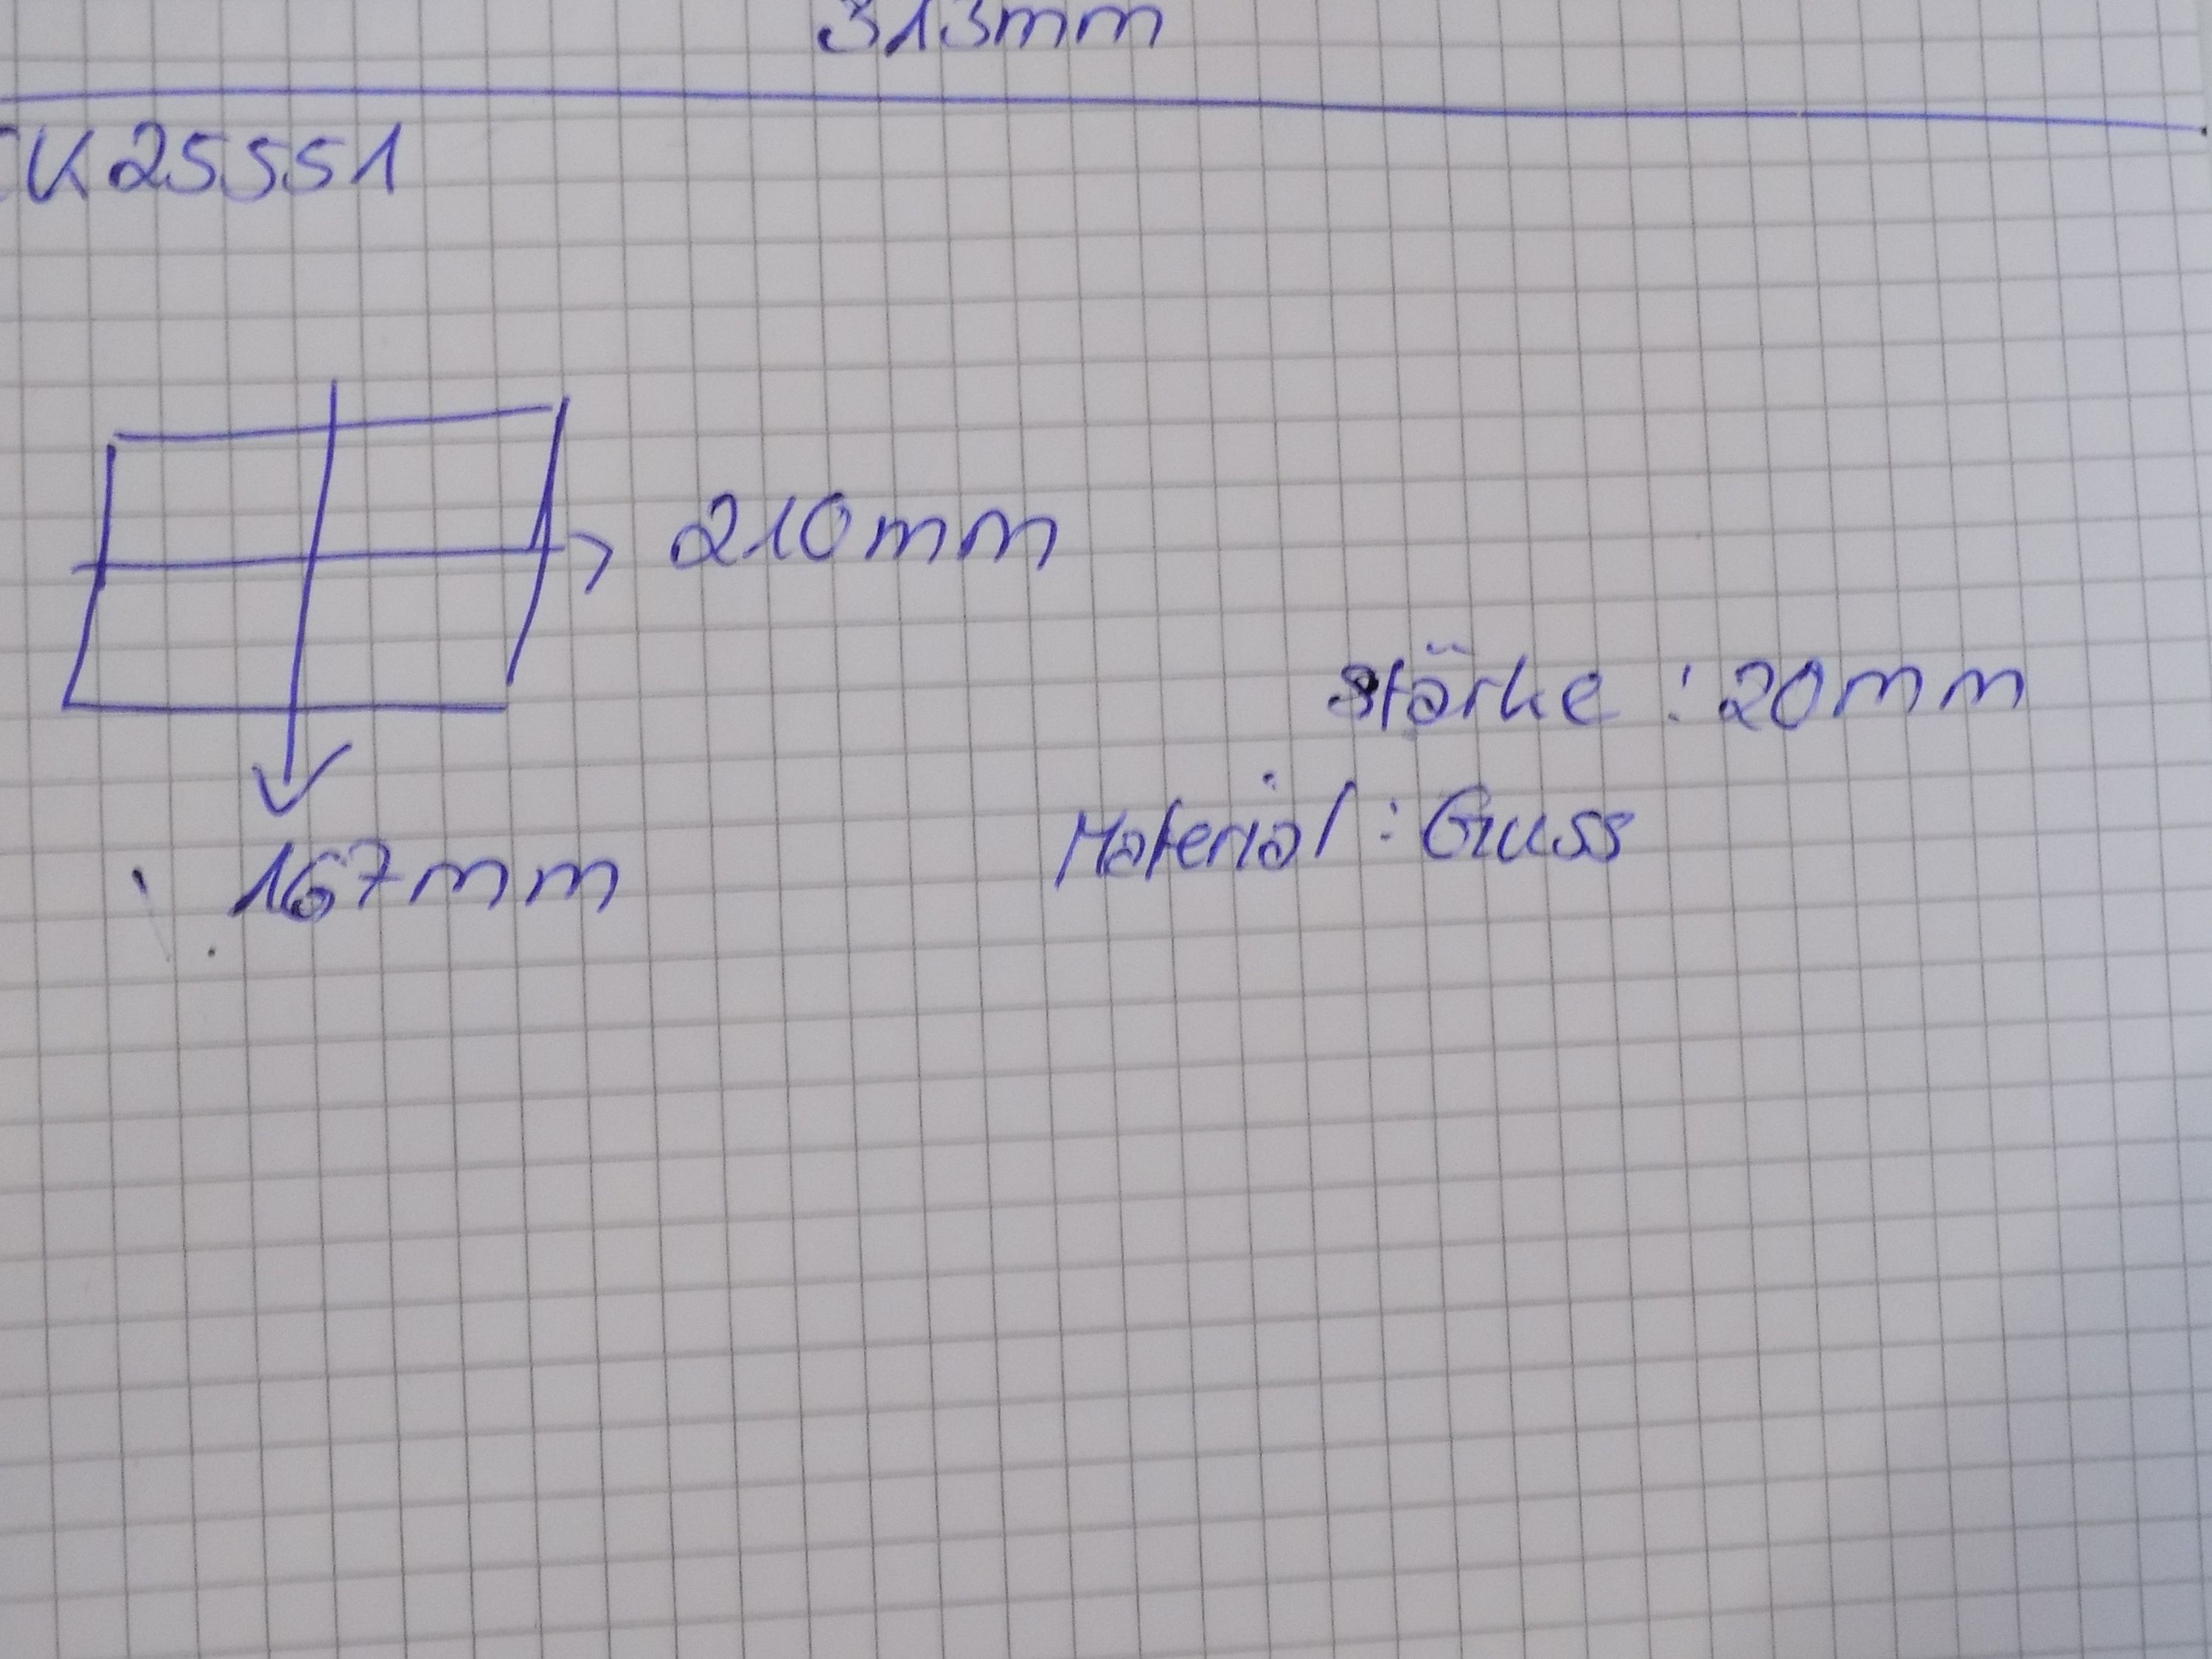 313mm
CK25551
210mm
Stärke : 20mm
Material : Guss
167mm